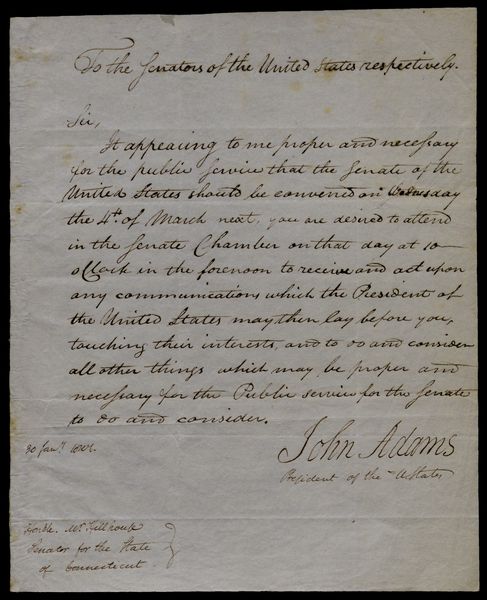 To the Senators of the United States respectively.
Sir,
It appearing to me proper and necessary
for the public Service that the Senate of the
United States should be convened on Wednesday
the 4th. of March next, you are desired to attend
in the Senate Chamber on that day at 10
oClock in the forenoon to receive and act upon
any communications which the President of
the United States may then lay before you,
touching their interests, and to do and consider
all other things which may be proper and
necessary for the Public service for the Senate
to do and consider.
John Adams
President of the UStates
30 Jany. 1801.
Honble. Mr. Hillhouse
Senator for the State
of Connecticut